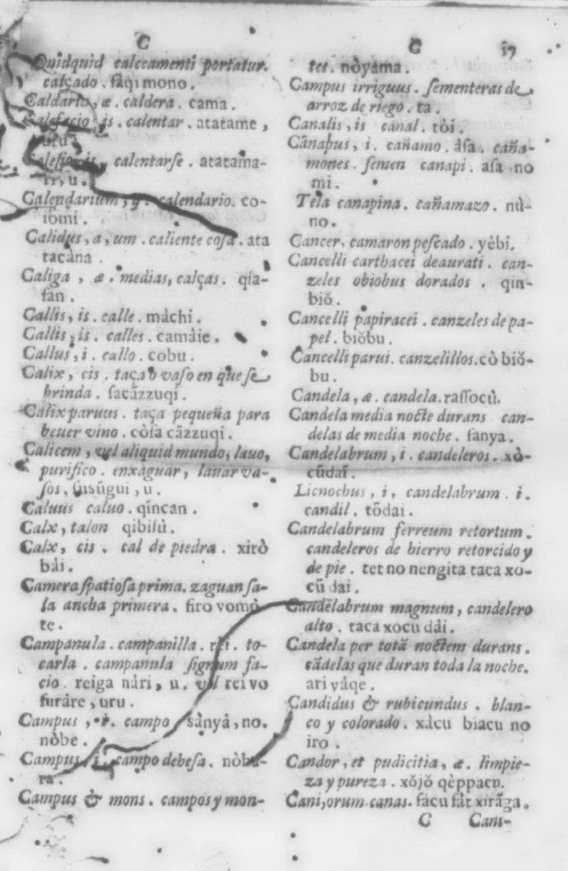 C
Quidquid calceamenti portatur.
calçado. saqi mono.
Caldario, æ. caldera. cama.
Calefacio, is. calentar. atatame,
uru.
Calefio, is, calentarse. atatama-
ri, u.
Calendarium, y. calendario. co-
iomi.
Calidus, a, um. caliente cosa. ata
tacana.
Caliga, æ. medias, calças. qia-
fan.
Callis, is. calle. máchi.
Callis, is. calles. camáie.
Callus, i. callo. cobu.
Calix, cis. taça o vaso en que se
brinda. sacãzzuqi.
Calix paruus. taça pequeña para
beuer vino. còsa cãzzuqi.
Calicem, vel aliquid mundo, lauo,
purifico. enxaguar, lauar va-
sos. susũgui, u.
Caluus caluo. qincan.
Calx, talon qibisù.
Calx, cis. cal de piedra. xirò
bâi.
Camera spatiosa prima. zaguan sa-
la ancha primera. firo vomo
te.
Campanula. campanilla. rei. to-
carla. campannla signum fa-
cio. reiga nári, u. vel rei vo
furàre, uru.
Campus, i. campo sànyâ, no.
nòbe.
Campus, i. campo debesa. nòba-
ra.
Campus & mons. campos y mon-
C 17
tes. nòyama.
Campus irriguus. sementeras de
arroz de riego. ta.
Canalis, is canal. tòi.
Cànabus, i. cañamo. àsa. caña-
mones. semen canapi. asa no
mi.
Tela canapina. cañamazo. nù-
no.
Cancer. camaron pescado. yèbi.
Cancelli carthacei deaurati. can-
zeles obiobus dorados. qin-
biŏ.
Cancelli papiracei. canzeles de pa-
pel. biŏbu.
Cancelli parui. canzelillos. cò biŏ-
bu.
Candela, æ. candela. rassocù.
Candela media nocte durans can-
delas de media noche. fanya.
Candelabrum, i. candeleros. xò-
cũdai.
Licnochus, i, candelabrum. i.
candil. tŏdai.
Candelabrum ferreum retortum.
candeleros de hierro retorcido y
de pie. tet no nengita taca xo-
cũ dai.
Candelabrum magnum, candelero
alto. taca xocu dâi.
Candela per totã noctem durans.
cãdelas que duran toda la noche.
ari vâqe.
Candidus & rubicundus. blan-
co y colorado. xàcu biacu no
iro.
Candor, et pudicitia, æ. limpie-
za y pureza. xŏjŏ qèppacu.
Cani, orum canas. facu fàt xirãga.
C Cani-